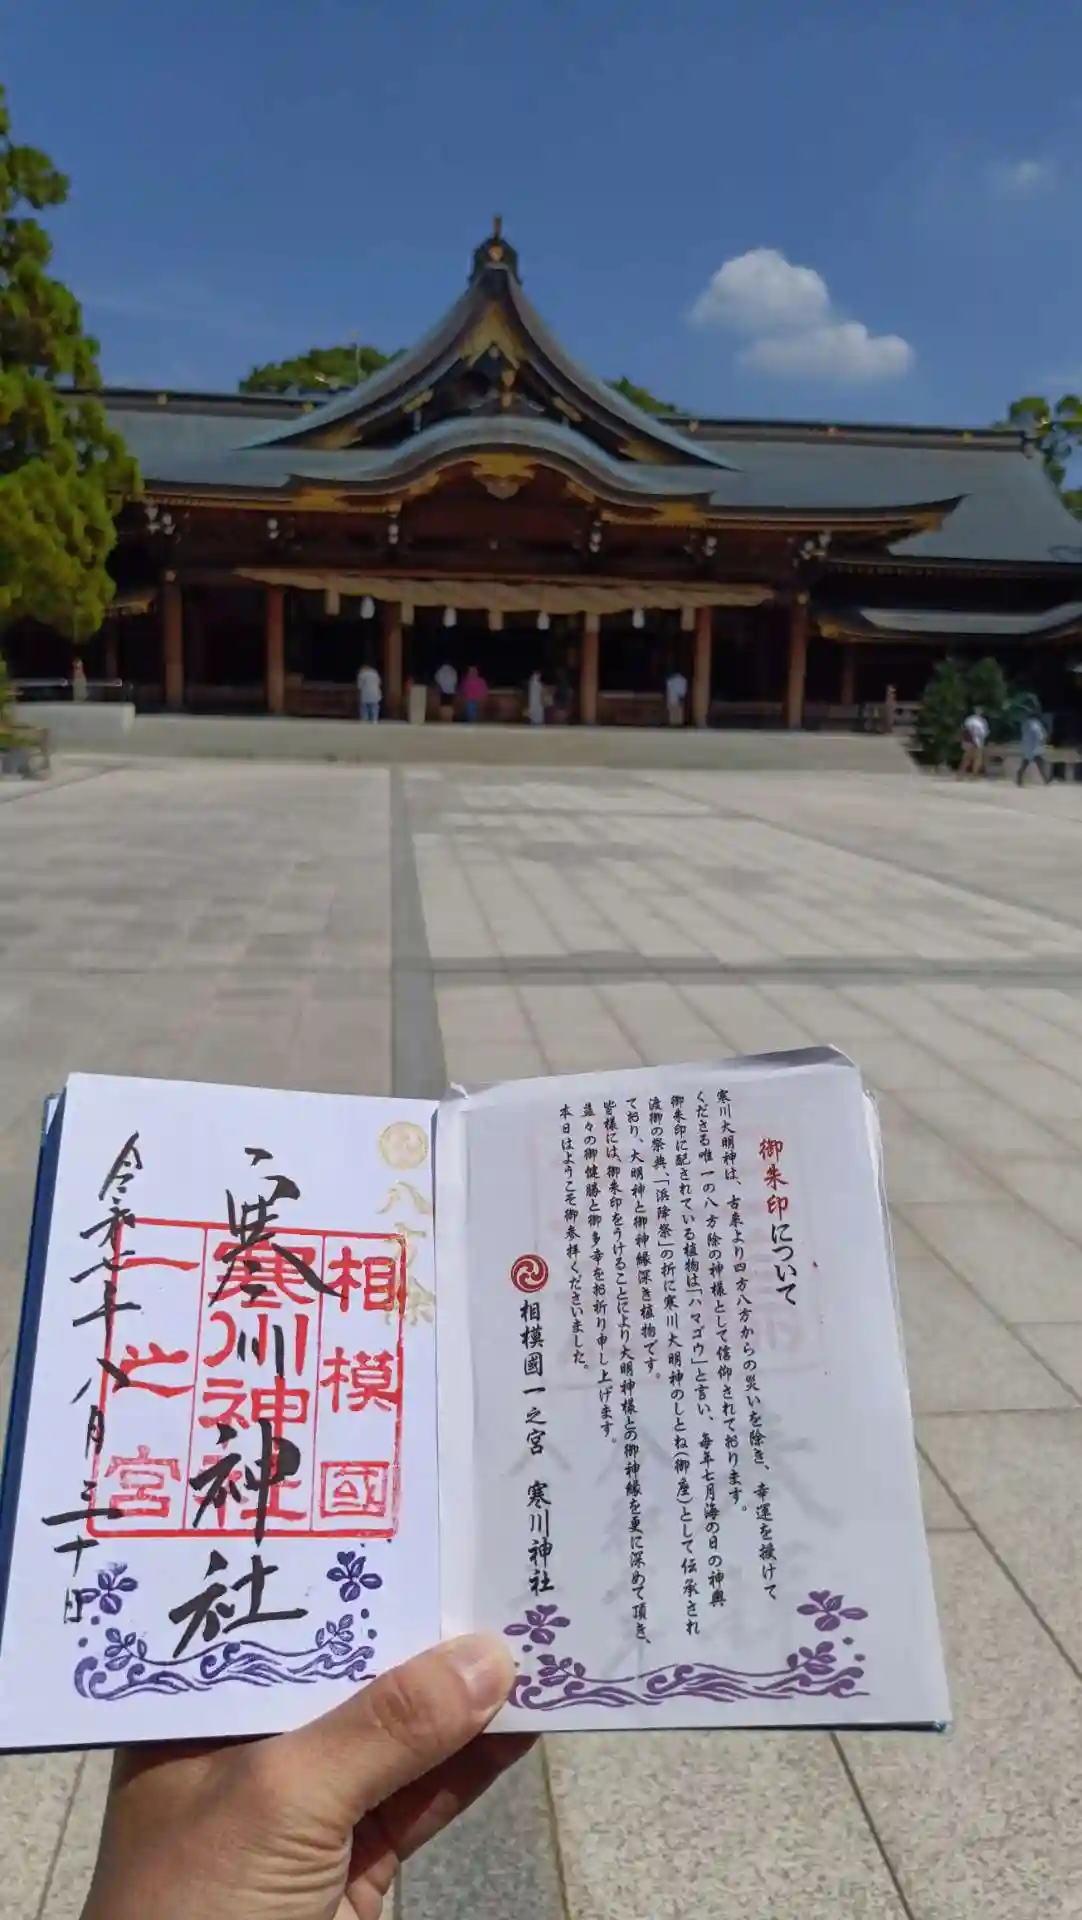 御朱印について
寒川大明神は、古来より四方八方からの災いを除き、幸運を授けて
くださる唯一の八方除の神様として信仰されております。
御朱印に配されている植物は「ハマゴウ」と言い、毎年七月海の日の神輿
渡御の祭典、「浜降祭」の折に寒川大明神のしとね(御座)として伝承され
ており、大明神と御神縁深き植物です。
皆様には、御朱印をうけることにより大明神様との御神縁を更に深めて頂き、
益々の御健勝と御多幸をお祈り申し上げます。
本日はようこそ御参拝くださいました。
相模國一之宮 寒川神社
八方除
相模國
寒川神社
一之宮
寒川神社
令和七年八月三十日